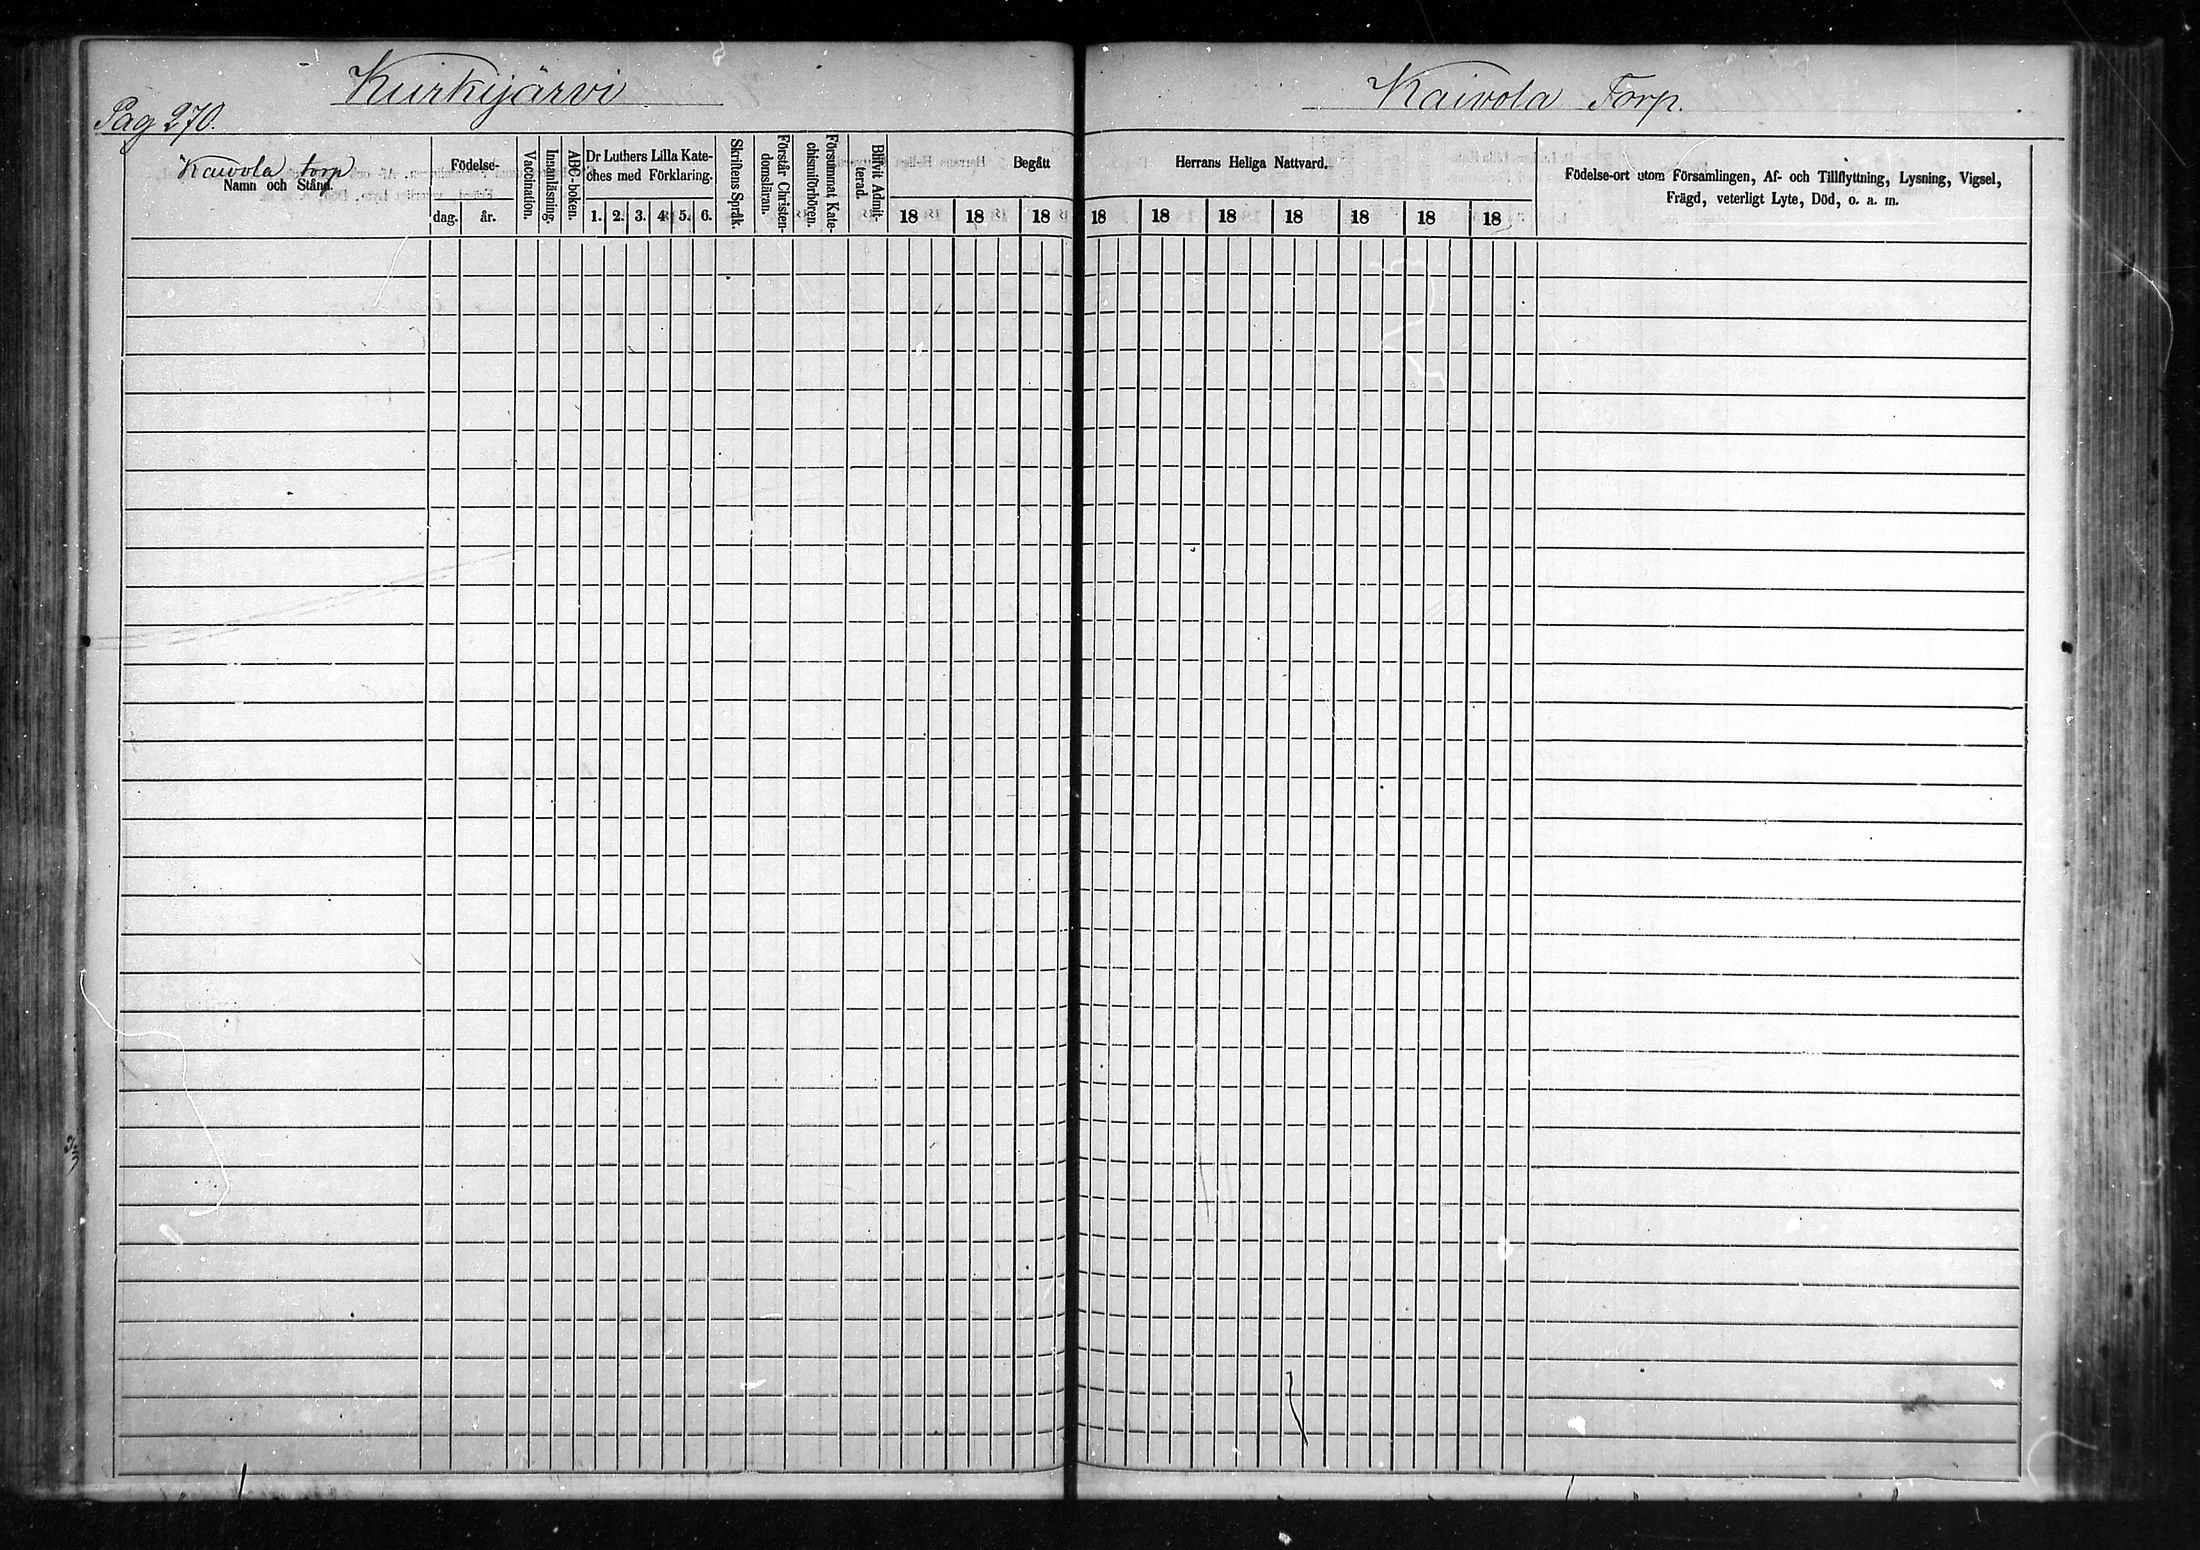 Kurkijärvi
Kaivola Torp.
Pag 270.
Kaivola torp
Namn och Stånd.
Födelse-
dag.
år.
Vaccination.
Innanläsning.
ABC-boken.
Dr Luthers Lilla Kate-
ches med Förklaring.
1. 2. 3. 4. 5. 6.
Skriftens Språk.
Förstår Christen-
domsläran.
Försummat Kate-
chismiförhören.
Blifvit Admit-
terad.
Begått
18 18 18
Herrans Heliga Nattvard.
18 18 18 18 18 18 18
Födelse-ort utom Församlingen, Af- och Tillflyttning, Lysning, Vigsel,
Frägd, veterligt Lyte, Död, o. a. m.